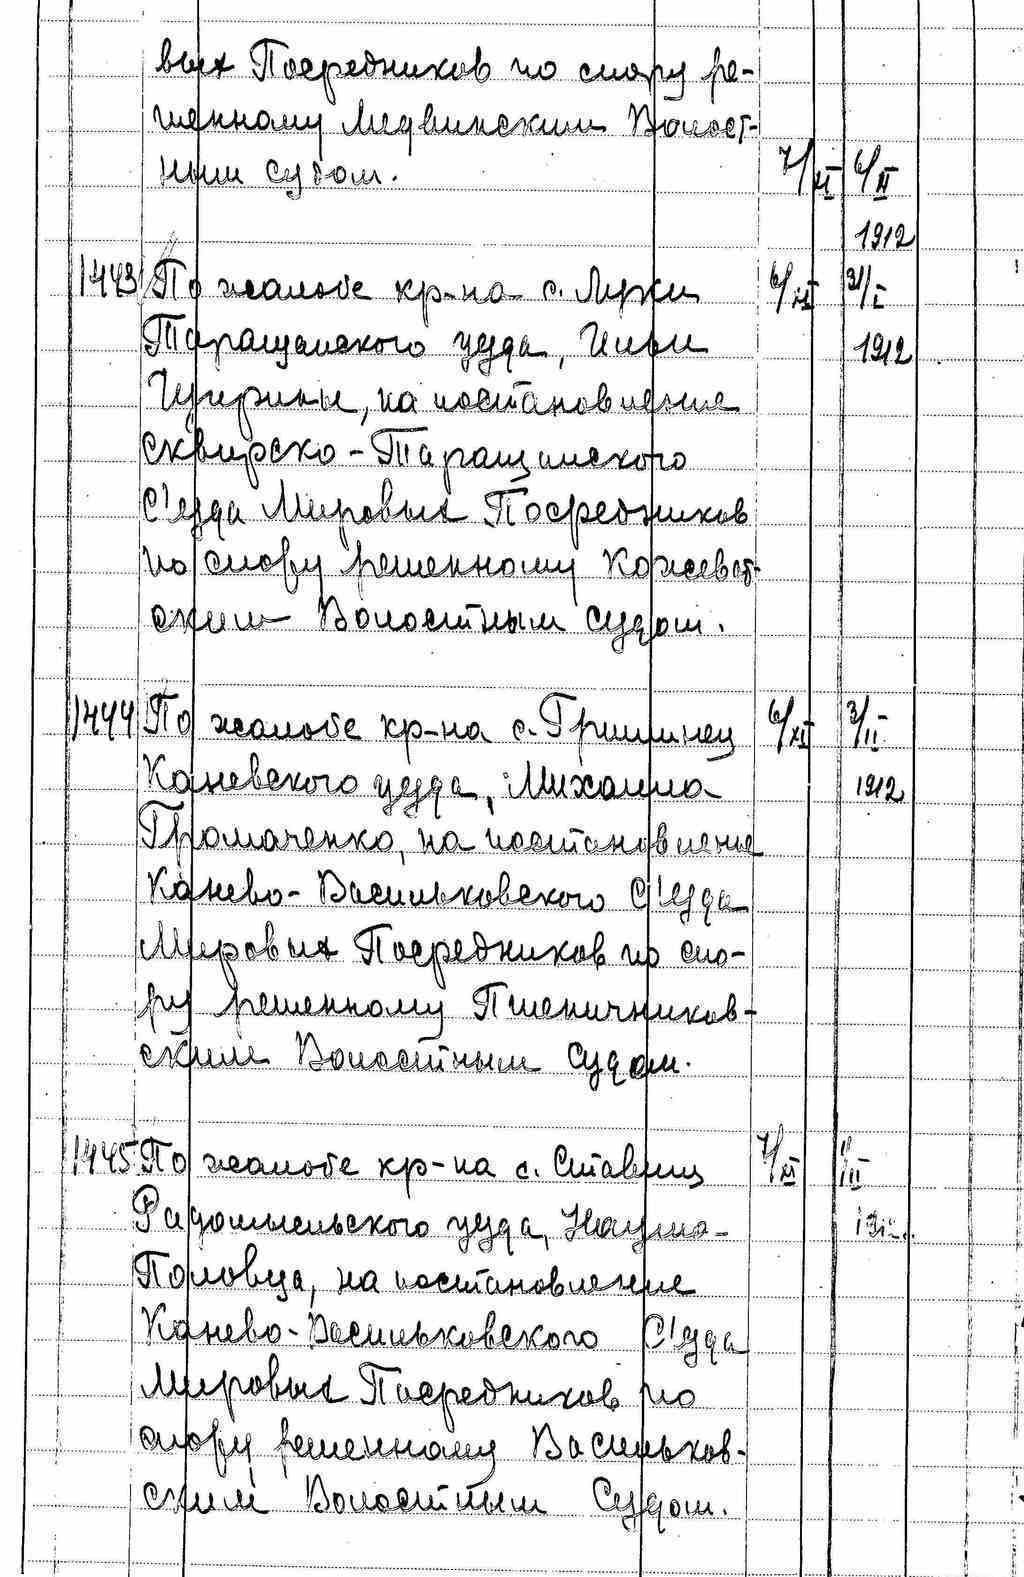 вых Посредников по спору ре-
шенному Медвинским Волост-
ным судом. 7/XI 6/II
1912
1443 По жалобе кр-на с. Луки 6/XI 31/I
Таращанского уезда, Ильи 1912
на постановление
Сквирско-Таращанского
С'езда Мировых Посредников
по спору решенному
ским Волостным судом.
1444 По жалобе кр-на с. Гришинец 6/XI 3/II
Каневского уезда, Михаила 1912
Громаченко, на постановление
Канево-Васильковского С'езда
Мировых Посредников по спо-
ру решенному Пшеничников-
ским Волостным судом.
1445 По жалобе кр-на с. Ставищ 7/XI /II
Радомысльского уезда, Наума
Половца, на постановление
Канево-Васильковского С'езда
Мировых Посредников по
спору решенному Васильков-
ским Волостным Судом.